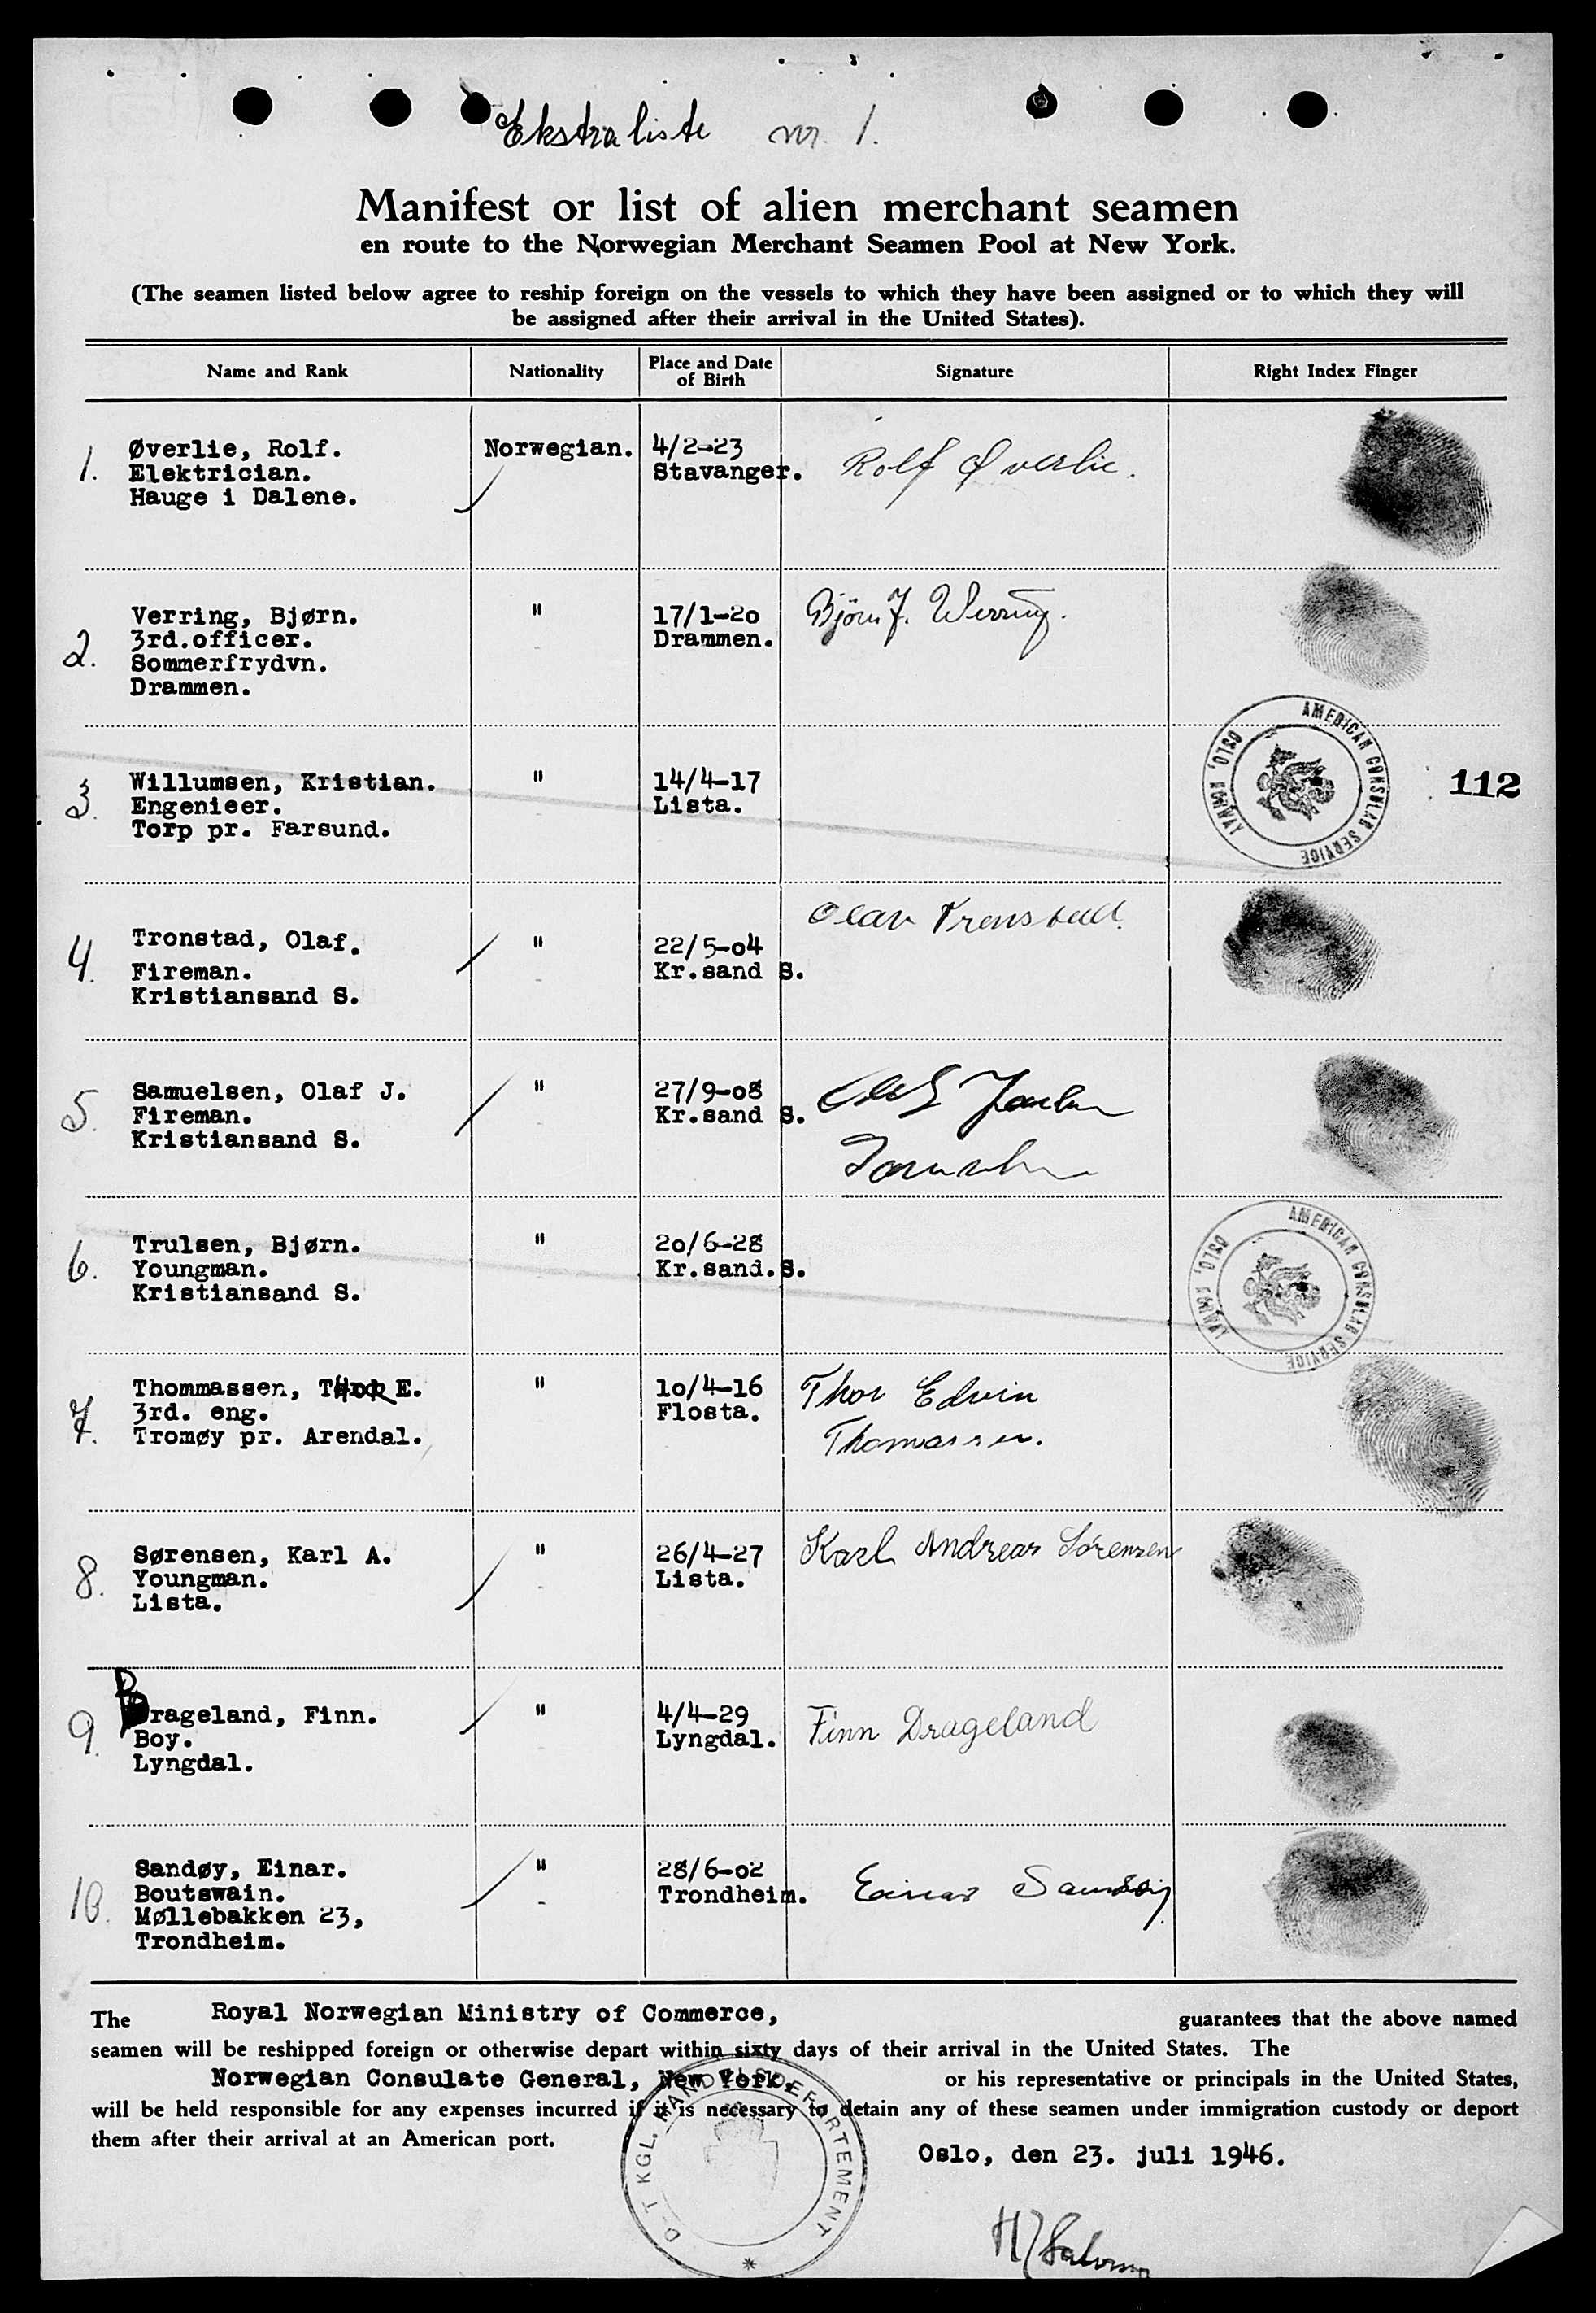 Ekstraliste nr. 1.
Manifest or list of alien merchant seamen
en route to the Norwegian Merchant Seamen Pool at New York.
(The seamen listed below agree to reship foreign on the vessels to which they have been assigned or to which they will
be assigned after their arrival in the United States).
Name and Rank Nationality Place and Date of Birth Signature Right Index Finger
1. Øverlie, Rolf. Norwegian. 4/2-23 Rolf Øverlie.
Elektrician. Stavanger.
Hauge i Dalene.
2. Verring, Bjørn. " 17/1-20 Bjørn J. Werring.
3rd.officer. Drammen.
Sommerfrydvn.
Drammen.
3 Willumsen, Kristian. " 14/4-17
Engenieer. Lista.
Torp pr. Farsund.
AMERICAN CONSULAR SERVICE
OSLO, NORWAY
112
4. Tronstad, Olaf. " 22/5-04 Olav Tronstad.
Fireman. Kr.sand S.
Kristiansand S.
5. Samuelsen, Olaf J. " 27/9-08
Fireman. Kr.sand S.
Kristiansand S.
6. Trulsen, Bjørn. " 20/6-28
Youngman. Kr.sand.S.
Kristiansand S.
AMERICAN CONSULAR SERVICE
OSLO, NORWAY
7. Thommassen, Thor E. " 10/4-16 Thor Edvin
3rd. eng. Flosta. Thomassen.
Tromøy pr. Arendal.
8. Sørensen, Karl A. " 26/4-27 Karl Andreas Sørensen
Youngman. Lista.
Lista.
9. Drageland, Finn. " 4/4-29 Finn Drageland
Boy. Lyngdal.
Lyngdal.
10. Sandøy, Einar. " 28/6-02 Einar Sandøy
Boutswain. Trondheim.
Møllebakken 23,
Trondheim.
The Royal Norwegian Ministry of Commerce, guarantees that the above named
seamen will be reshipped foreign or otherwise depart within sixty days of their arrival in the United States. The
Norwegian Consulate General, New York, or his representative or principals in the United States,
will be held responsible for any expenses incurred if it is necessary to detain any of these seamen under immigration custody or deport
them after their arrival at an American port.
Oslo, den 23. juli 1946.
D T KGL. HANDELSDEPARTEMENT